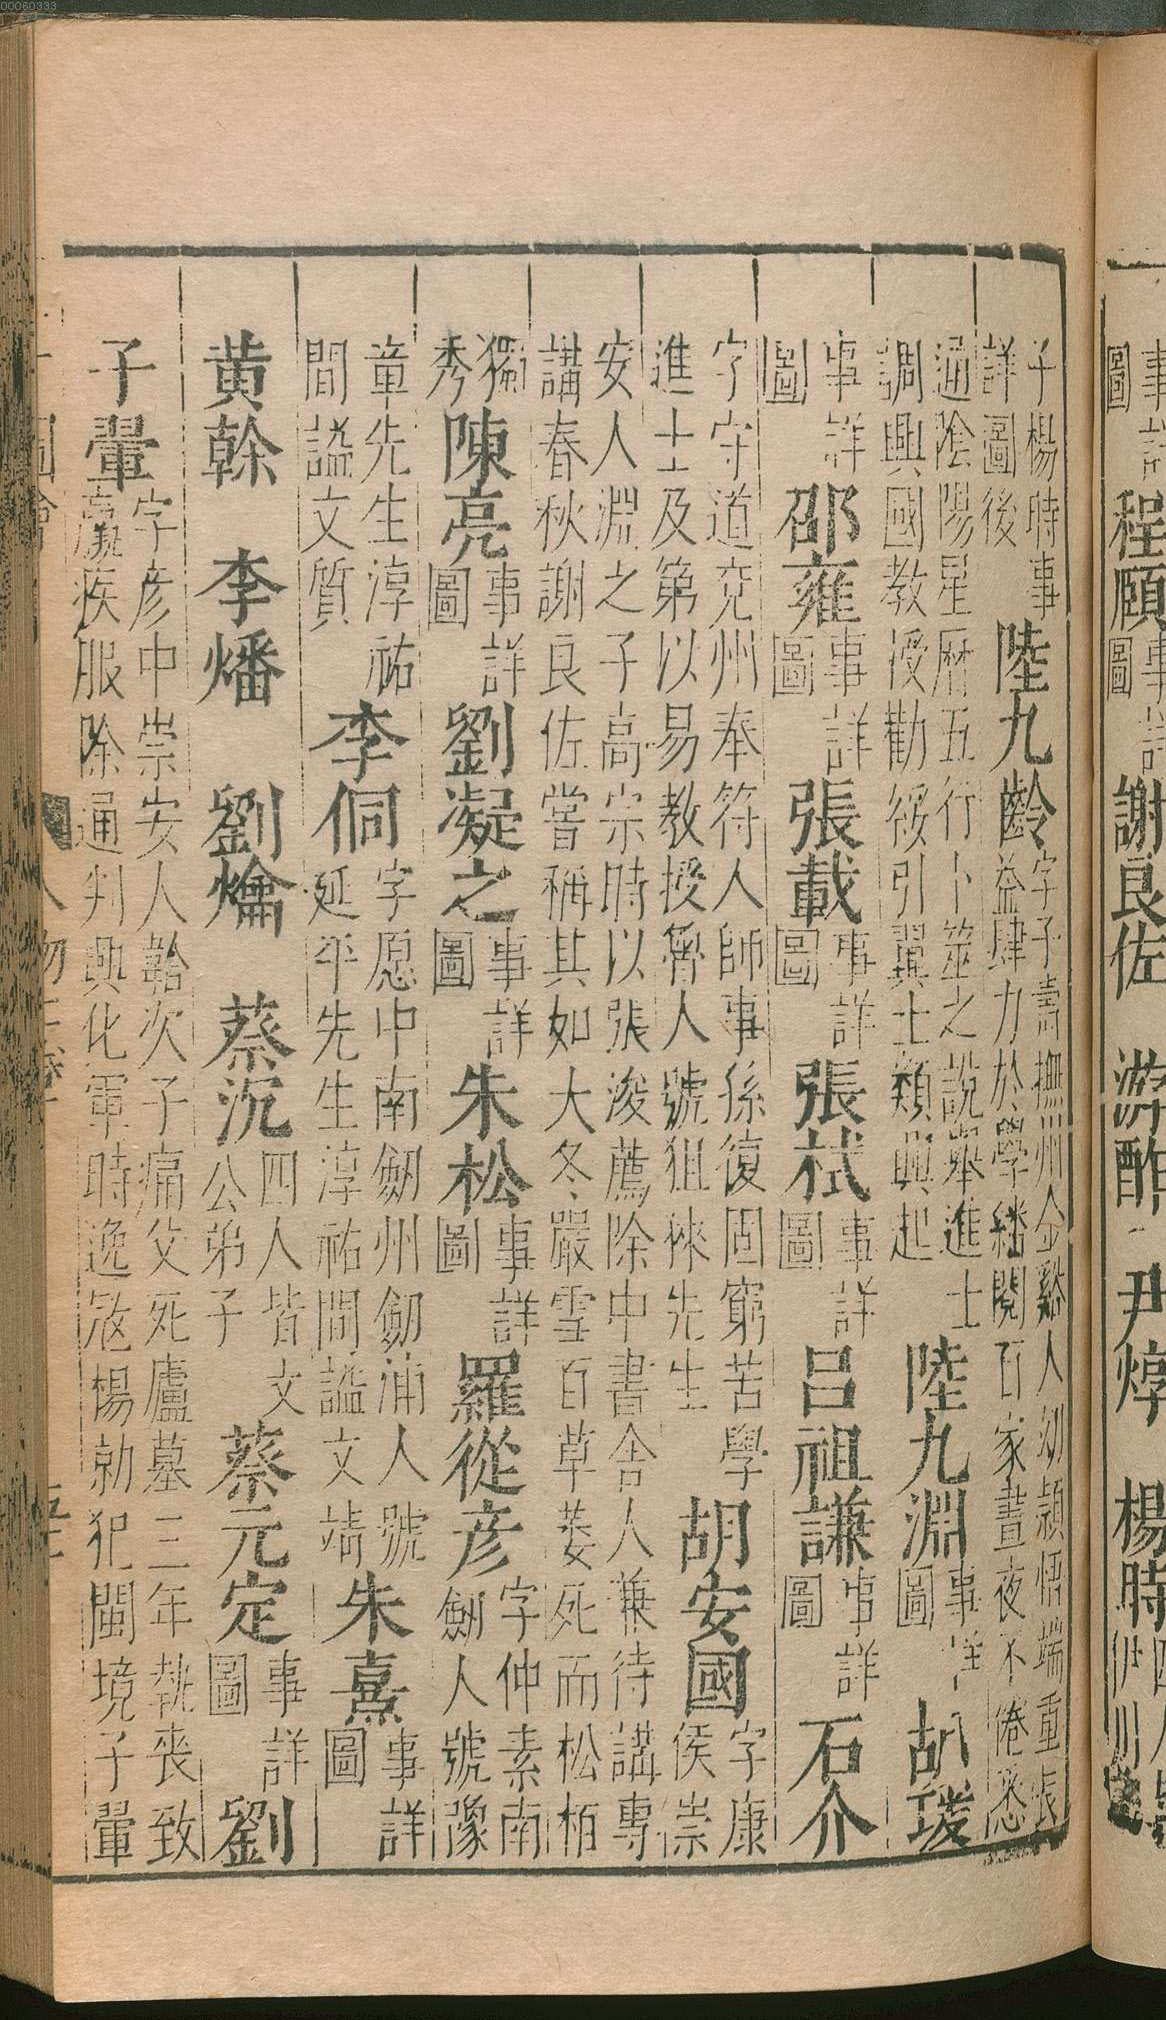 00060333
事詳
圖
程頤
事詳
圖
謝良佐　游酢　尹焞　楊時
四人皆
伊川
子楊時事
詳圖後
陸九齡
字子壽撫州金谿人幼頴悟端重長
益肆力於學繙閱百家晝夜不倦悉
通陰陽星厤五行卜筮之說舉進士
調興國教授勸綏引翼士類興起
陸九淵
事詳
圖
胡瑗
事詳
圖
邵雍
事詳
圖
張載
事詳
圖
張栻
事詳
圖
呂祖謙
事詳
圖
石介
字守道兗州奉符人師事孫復固窮苦學
進士及第以易教授魯人號狙徠先生
胡安國
字康
侯崇
安人淵之子高宗時以張浚薦除中書舍人兼待講專
講春秋謝良佐嘗稱其如大冬嚴雪百草萎死而松栢
獨
秀
陳亮
事詳
圖
劉凝之
事詳
圖
朱松
事詳
圖
羅從彥
字仲素南
劍人號豫
章先生淳祐
間謚文質
李侗
字愿中南劒州劒浦人號
延平先生淳祐間謚文靖
朱熹
事詳
圖
黃榦　李燔　劉爚　蔡沉
四人皆文
公弟子
蔡元定
事詳
圖
劉
子翬
字彥中崇安人韐次子痛父死廬墓三年執喪致
羸疾服除通判興化軍時逸冦楊勍犯閩境子翬
人物